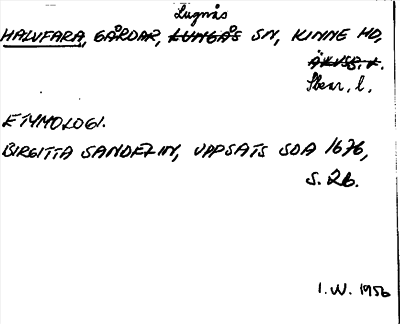 Lugnås
HALVFARA, GÅRDAR, LUNGÅS SN, KINNE HD,
Skar. l.
ETYMOLOGI.
BIRGITTA SANDELIN, UPPSATS SOA 1676,
S. 26.
I. W. 1956